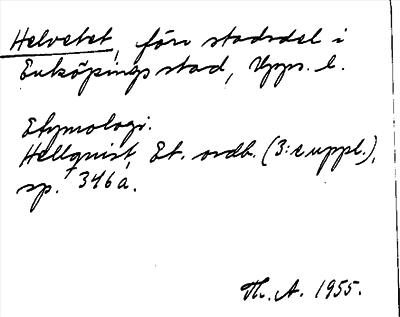 Helvetet, förr stadsdel i
Enköpings stad, Upps. l.
Etymologi.
Hellquist, Et. ordb. (3:e uppl.),
sp. 346a.
Th. A. 1955.